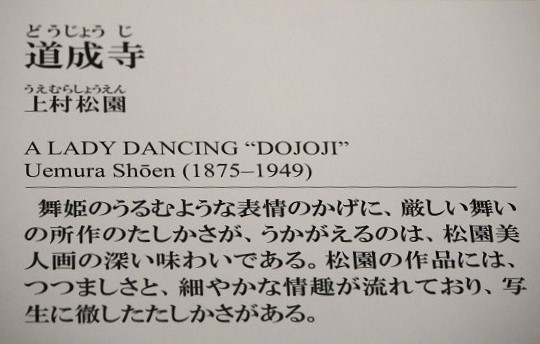 どうじょうじ
道成寺
うえむらしょうえん
上村松園
A LADY DANCING “DOJOJI”
Uemura Shōen (1875–1949)
舞姫のうるむような表情のかげに、厳しい舞い
の所作のたしかさが、うかがえるのは、松園美
人画の深い味わいである。松園の作品には、
つつましさと、細やかな情趣が流れており、写
生に徹したたしかさがある。